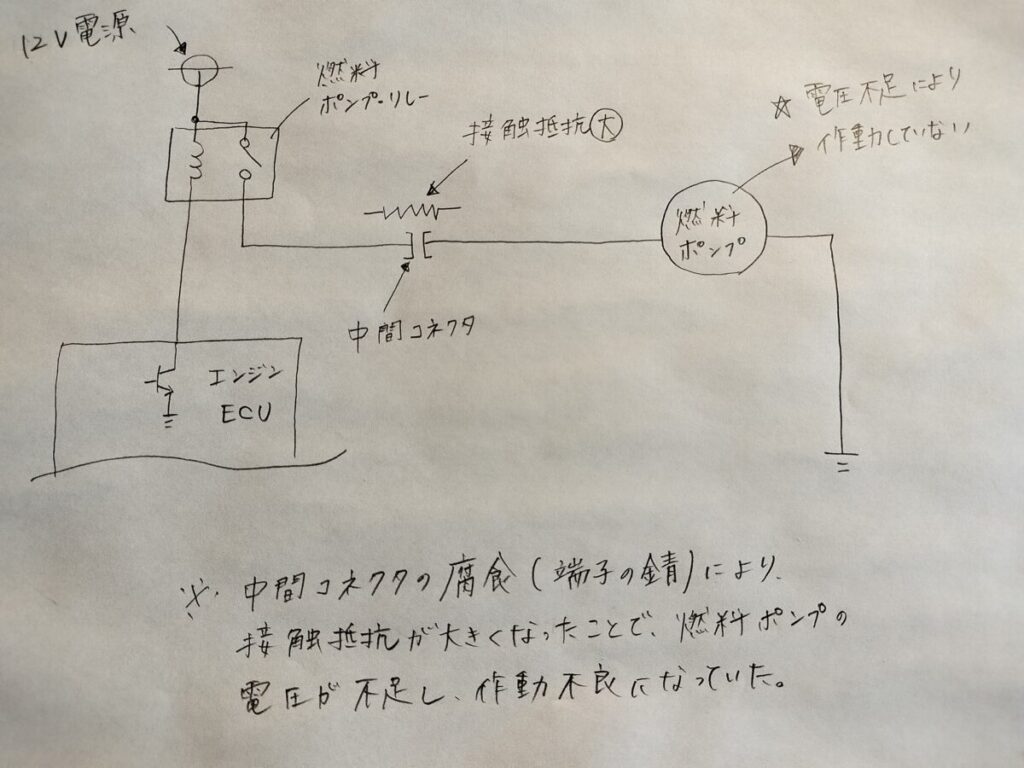 12V電源
燃料
ポンプ・リレー
接触抵抗大
☆ 電圧不足により
作動していない
燃料
ポンプ
中間コネクタ
エンジン
ECU
※ 中間コネクタの腐食(端子の錆)により、
接触抵抗が大きくなったことで、燃料ポンプの
電圧が不足し、作動不良になっていた。